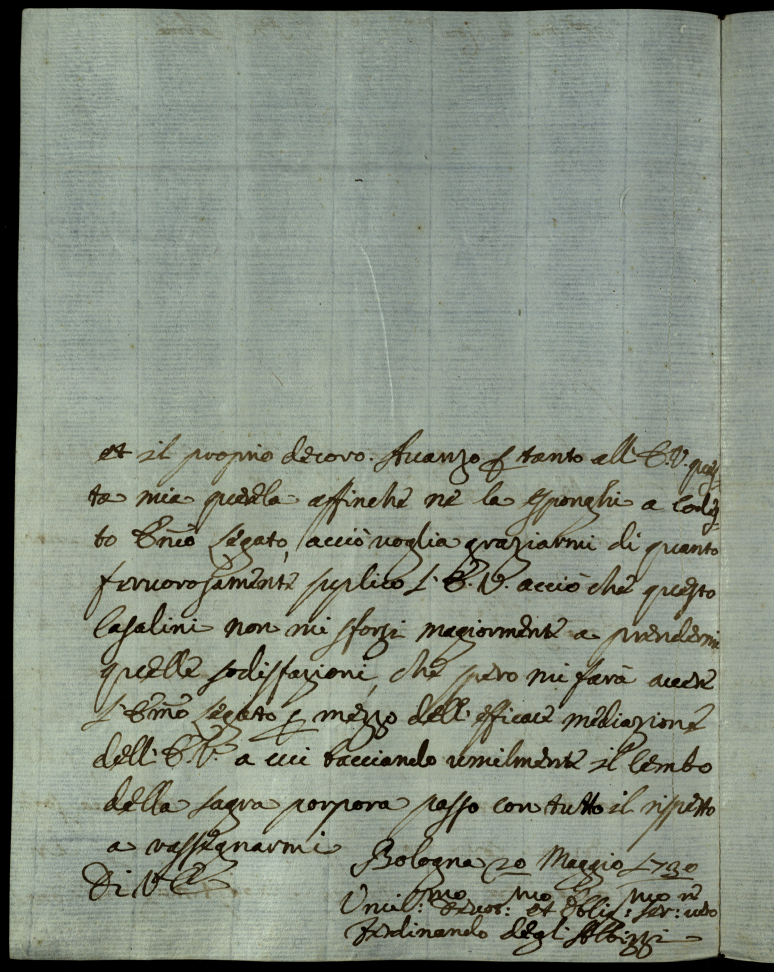 et il proprio decoro. Auanzo p tanto all' E.V. ques-
ta mia querela affinche ne la esponghi a codes-
to Emo Legato, acciò uoglia graziarmi di quanto
feruorosamente suplico l'E.V. acciò che questo
Casalini non mi sforzi magiormente a prendermi
quelle sodisfazioni, che spero mi farà auere
l'Emo Legato p mezzo dell'efficace mediazione
dell'E.V. a cui bacciando umilmente il lembo
della sagra porpora passo con tutto il rispetto
a rassegnarmi
Bologna 20 Maggio 1730
Di V E
Umil:mo Deuot:mo et Oblig:mo Ser:
Ferdinando degl'Albizzi